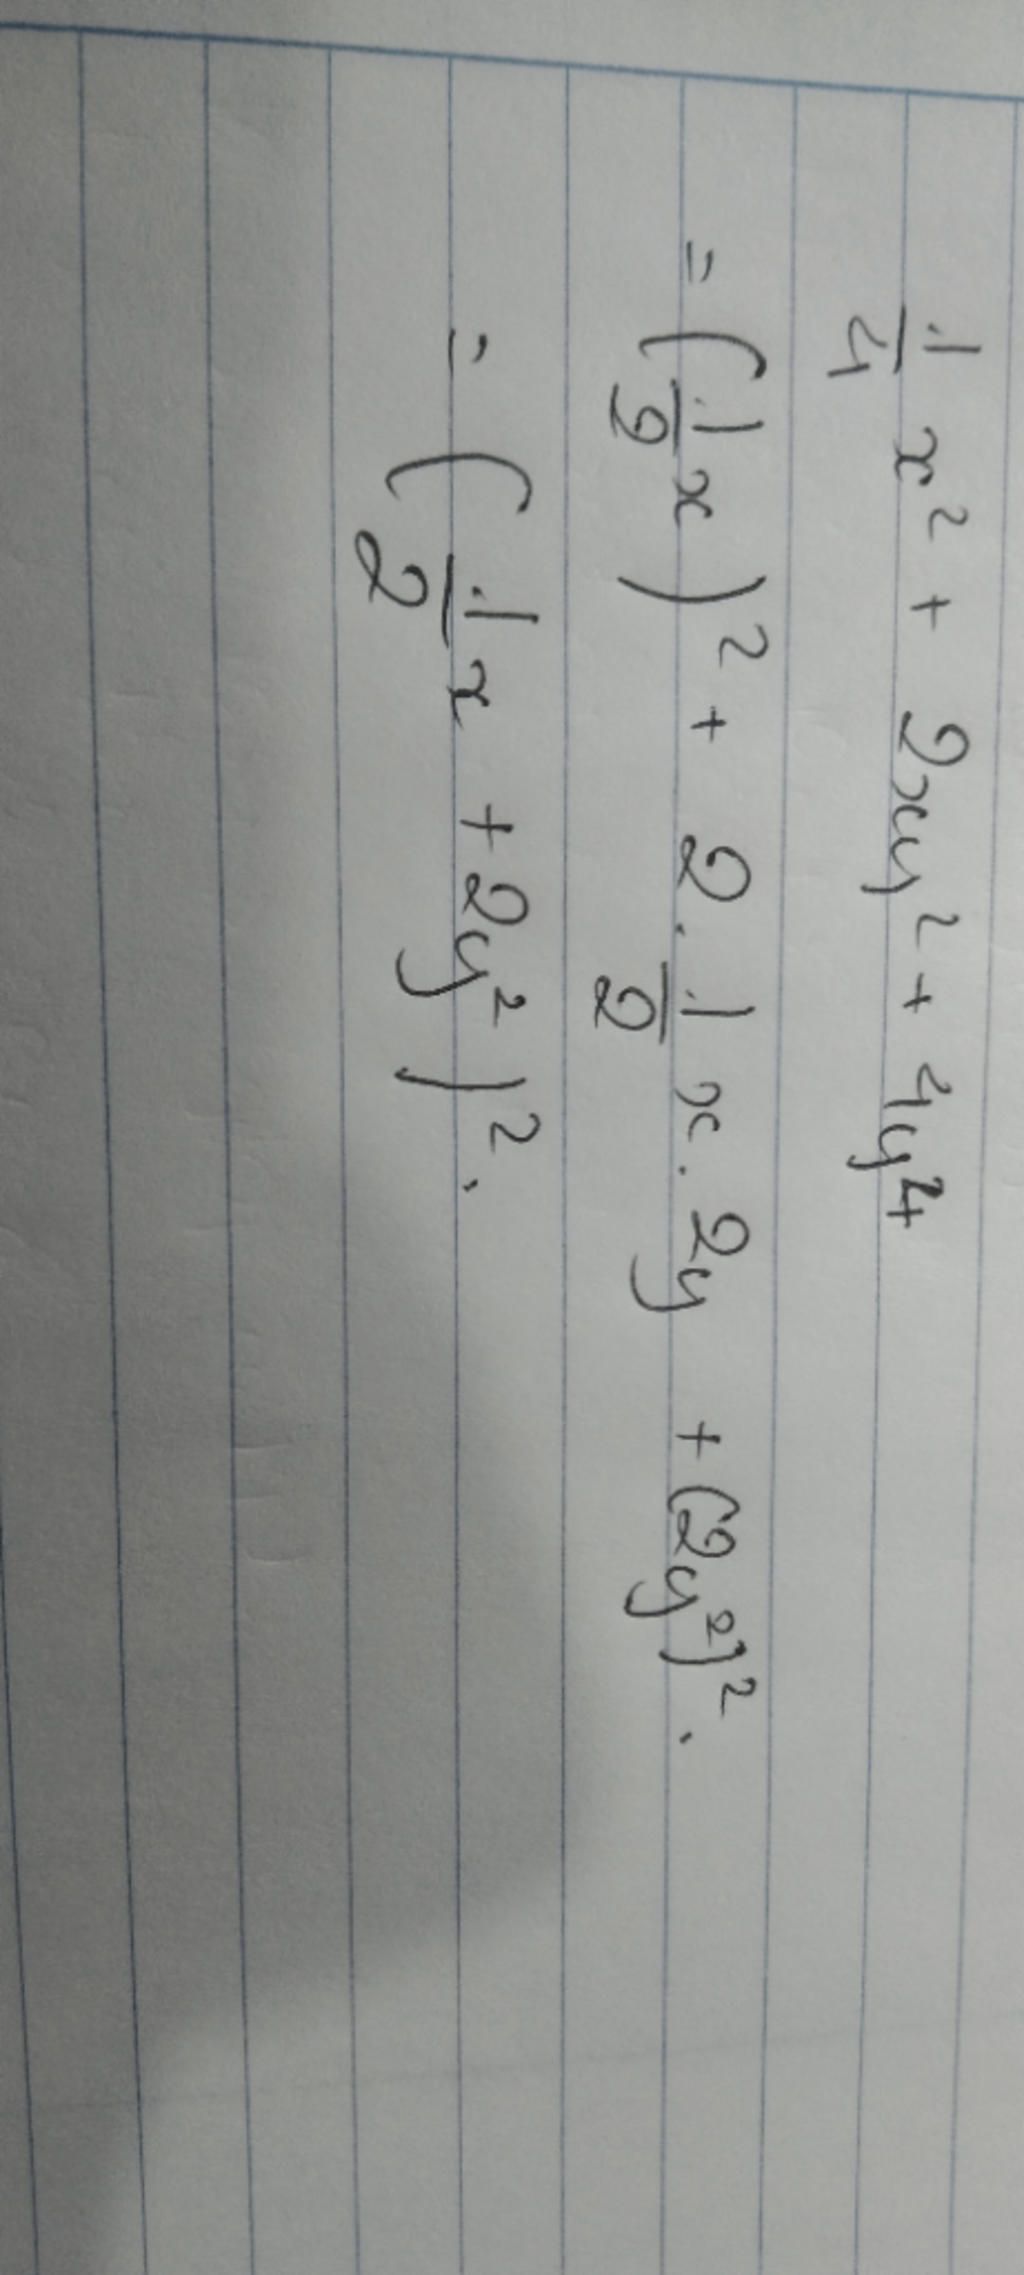 1/4 x² + 2xy² + 4y⁴
= (1/2 x)² + 2 . 1/2 x . 2y + (2y²)² .
= (1/2 x + 2y²)² .